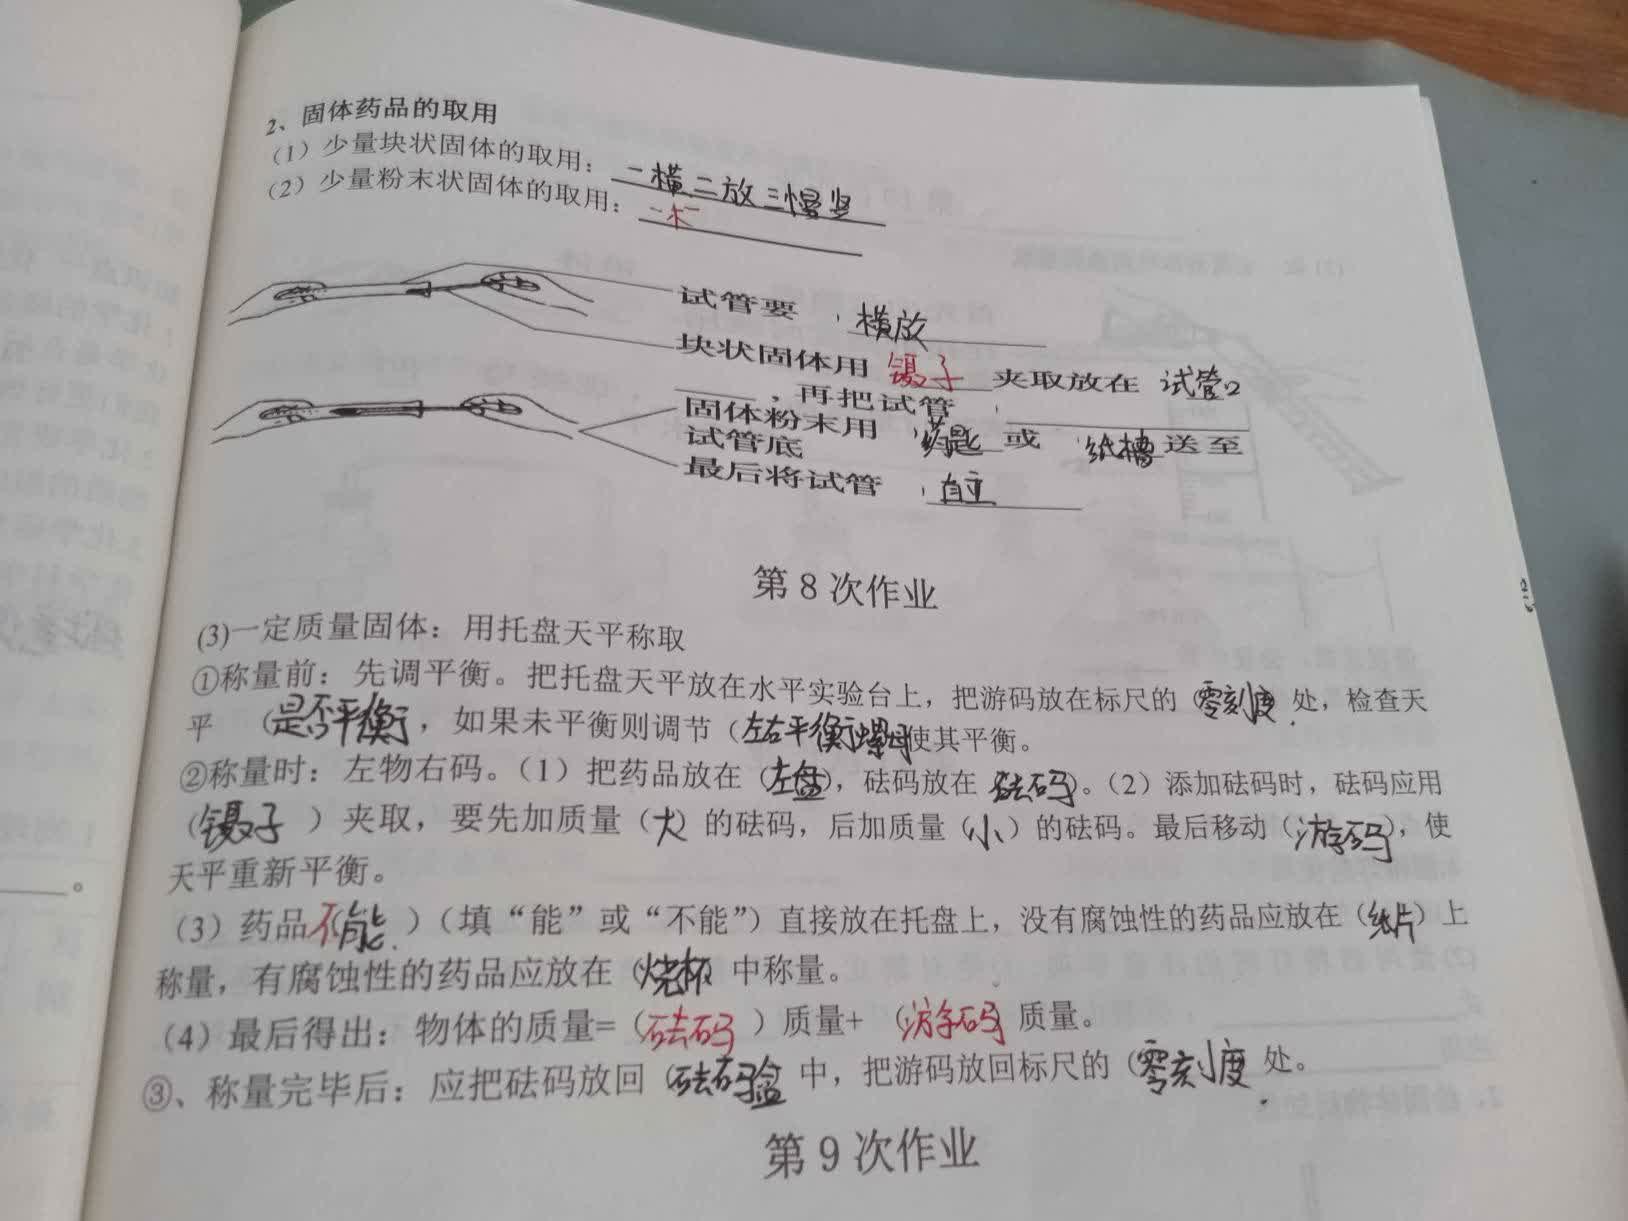 2、固体药品的取用
（1）少量块状固体的取用：一横二放三慢竖
（2）少量粉末状固体的取用：一
试管要 ，横放
块状固体用 镊子 夹取放在 试管口
，再把试管
固体粉末用 药匙 或 纸槽 送至
试管底
最后将试管 ，直立
第 8 次作业
(3)一定质量固体：用托盘天平称取
①称量前：先调平衡。把托盘天平放在水平实验台上，把游码放在标尺的 零刻度 处，检查天
平 （是否平衡），如果未平衡则调节（左右平衡螺母 使其平衡。
②称量时：左物右码。（1）把药品放在（左盘），砝码放在 砝码）。（2）添加砝码时，砝码应用
（镊子 ）夹取，要先加质量（大）的砝码，后加质量（小）的砝码。最后移动（游码），使
天平重新平衡。
（3）药品（不能 ）（填“能”或“不能”）直接放在托盘上，没有腐蚀性的药品应放在（纸片）上
称量，有腐蚀性的药品应放在（烧杯 中称量。
（4）最后得出：物体的质量=（砝码 ）质量+ （游码 质量。
③、称量完毕后：应把砝码放回（砝码盒 中，把游码放回标尺的（零刻度 处。
第 9 次作业